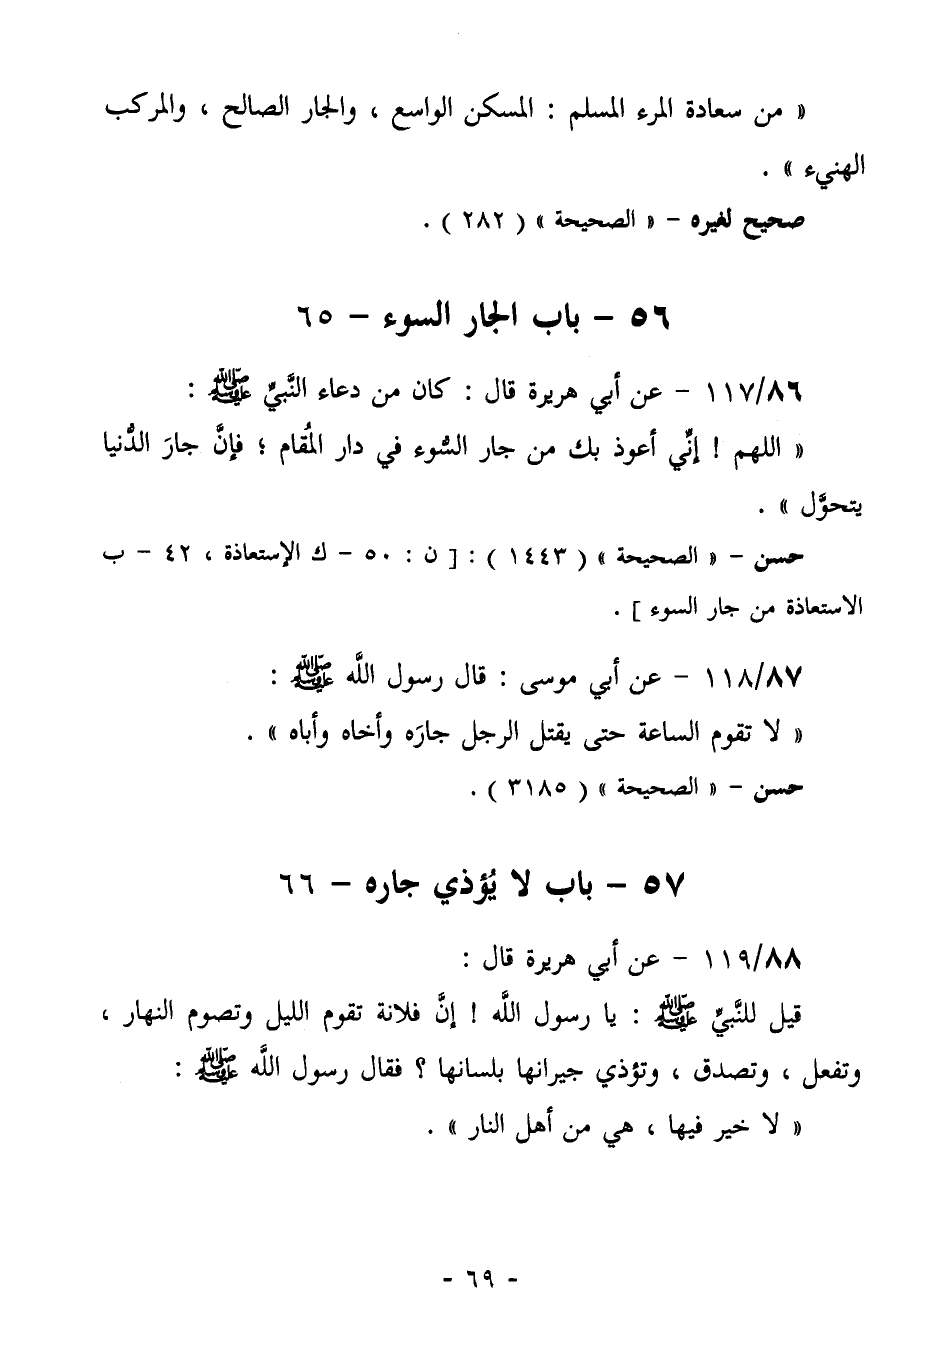 « من سعادة المرء المسلم : المسكن الواسع ، والجار الصالح ، والمركب
الهنيء » .
صحيح لغيره – « الصحيحة » ( ٢٨٢ ) .
٥٦ – باب الجار السوء – ٦٥
١١٧/٨٦ – عن أبي هريرة قال : كان من دعاء النَّبيِّ ﷺ :
« اللهم ! إنِّي أعوذ بك من جار السُّوء في دار المُقام ؛ فإنَّ جارَ الدُّنيا
يتحوَّل » .
حسن – « الصحيحة » ( ١٤٤٣ ) : [ ن : ٥٠ – ك الإستعاذة ، ٤٢ – ب
الاستعاذة من جار السوء ] .
١١٨/٨٧ – عن أبي موسى : قال رسول اللَّه ﷺ :
« لا تقوم الساعة حتى يقتل الرجل جارَه وأخاه وأباه » .
حسن – « الصحيحة » ( ٣١٨٥ ) .
٥٧ – باب لا يُؤذي جاره – ٦٦
١١٩/٨٨ – عن أبي هريرة قال :
قيل للنَّبيِّ ﷺ : يا رسول اللَّه ! إنَّ فلانة تقوم الليل وتصوم النهار ،
وتفعل ، وتصدق ، وتؤذي جيرانها بلسانها ؟ فقال رسول اللَّه ﷺ :
« لا خير فيها ، هي من أهل النار » .
- ٦٩ -